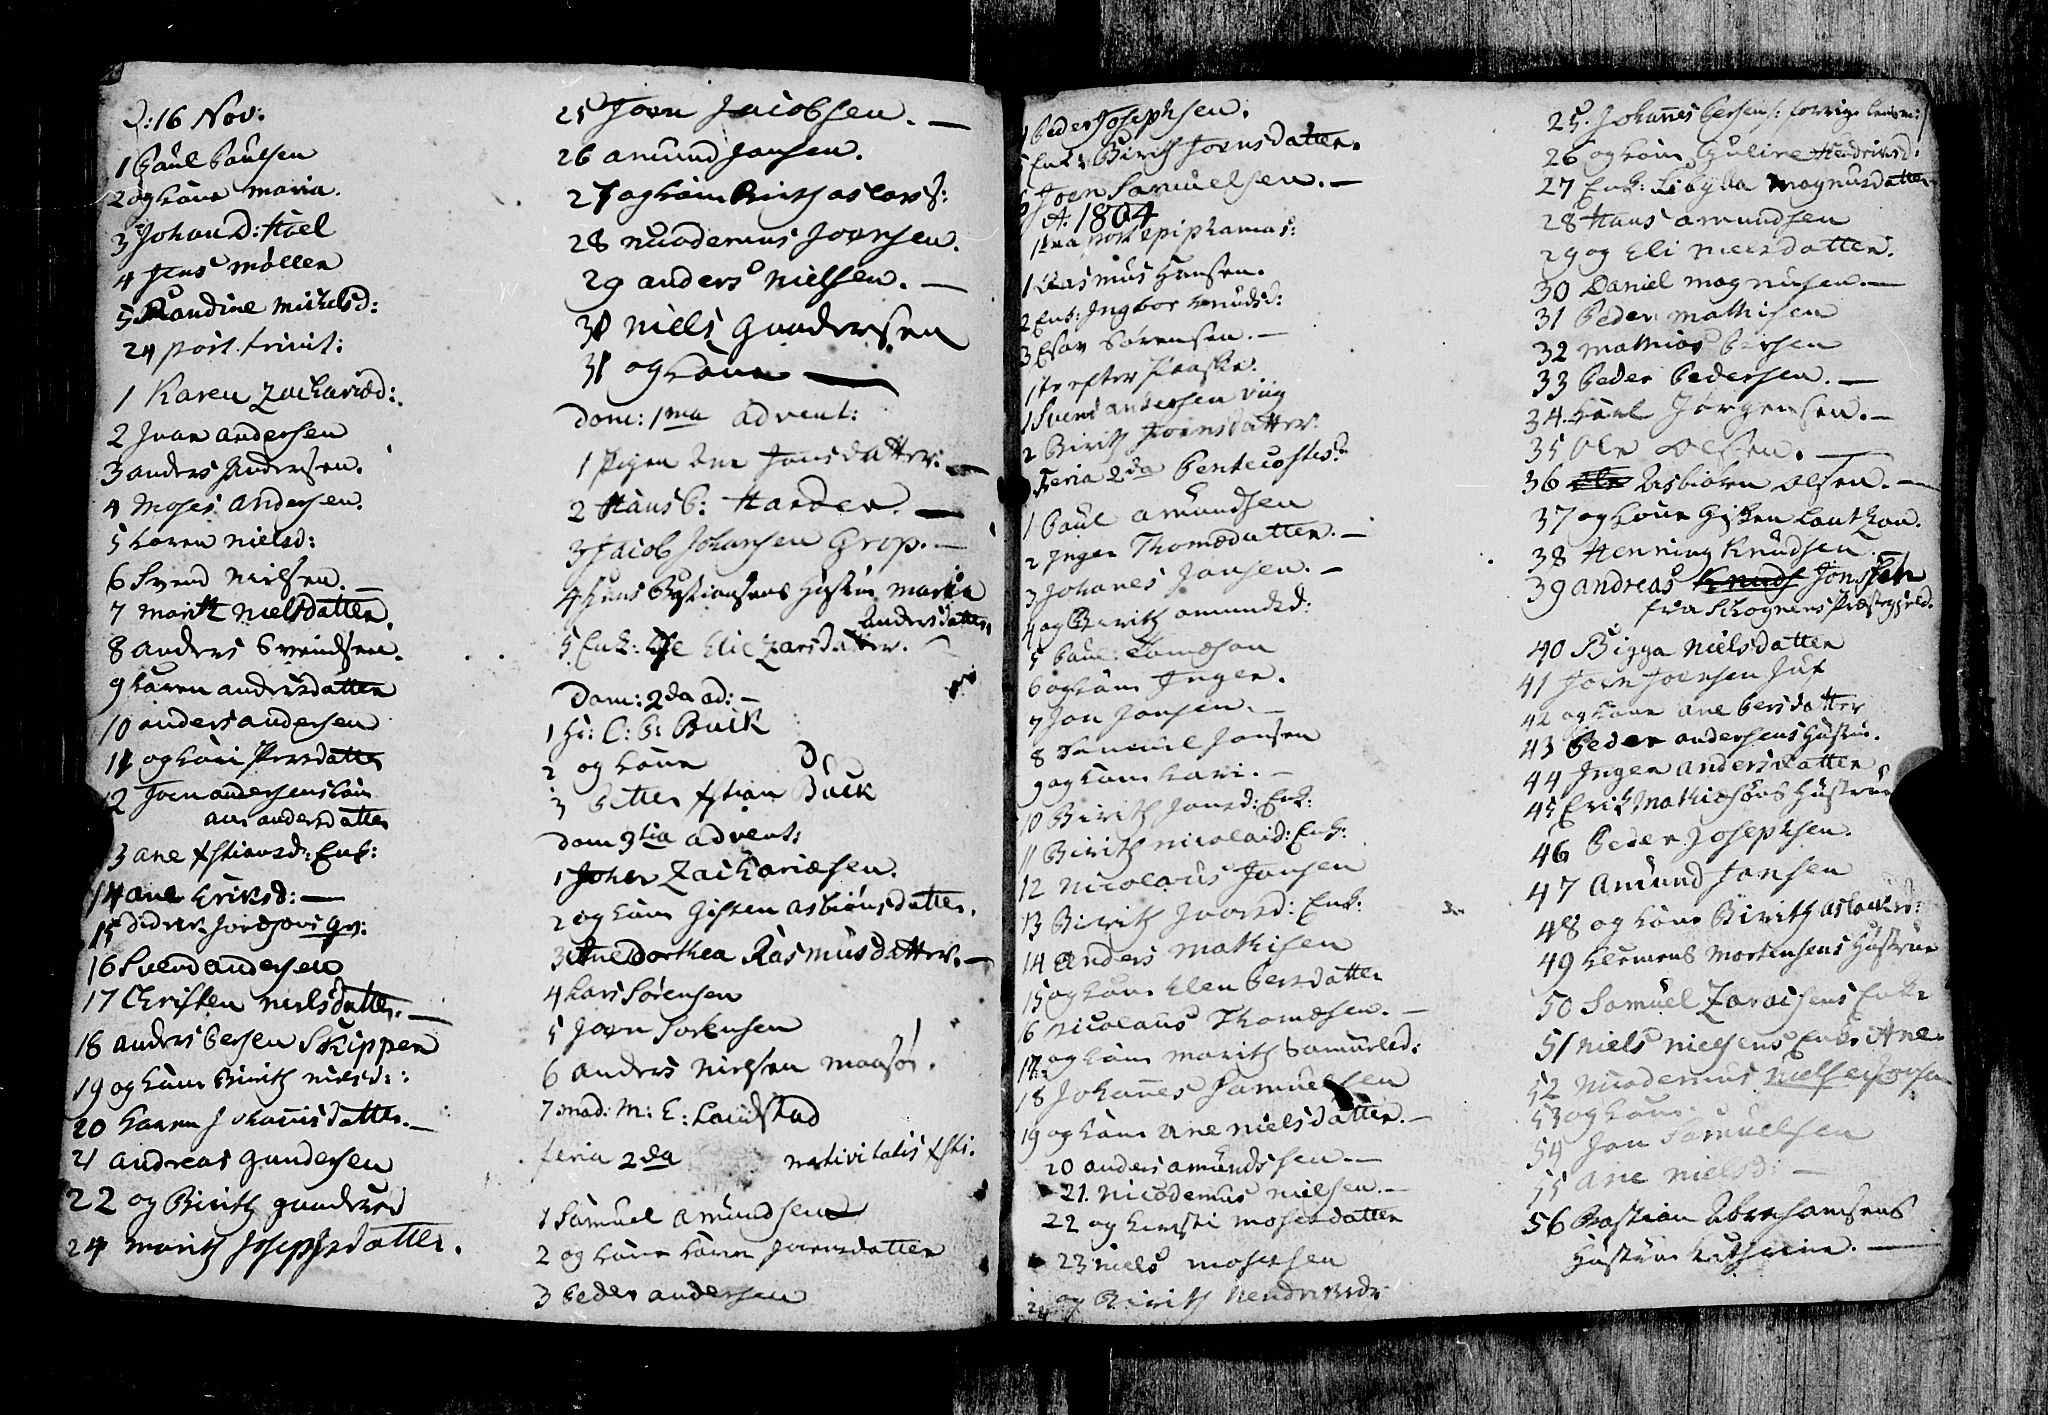 D: 16 Nov:
1 Paul Paulsen
2 og kone Maria.
3 Johan D: Hoel
4 Jens Møller
5 Randine Mickelsd:
24 post. trinit:
1 Karen Zachariæd:
2 Ivar Andersen
3 Anders Andersen.
4 Moses Andersen.
5 Karen Nielsd:
6 Svend Nielsen. —
7 Marith Nielsdatter.
8 Anders Svendsen.
9 Karen Andersdatter
10 Anders Andersen
11 og kone Persdatter
12 Joen Andersens kone
Ane Andersdatter
13 Ane Xstiansd: Enk:
14 Ane Eriksd: —
15 Didrik
16 Svend Andersen
17 Christen Nielsdatter. —
18 Anders Persen Skipper
19 og kone Birith Nielsd:
20 Karen Johannisdatter. —
21 Andreas Gundersen
22 og Birith Gundersd
24 Marith Josephsdatter.
25 Joen Jacobsen. —
26 Amund Jonsen.
27 og kone Birith Aslaks:
28 Nicodemus Joensen.
29 Anders Nielsen. —
30 Niels Gundersen
31 og kone —
Dom: 1ma Advent:
1 Pigen Ane Jonsdatter. —
2 Hans B: Harder. —
3 Jacob Johansen Grop. —
4 Hans Bastiansens Hustru Maria
Andersdatter.
5 Enk: Eliezarsdatter. —
Dom: 2da ad: —
1 Hr: C: P: Buck
2 og kone
3 Petter Xstian Buck
Dom 3tia advent:
1 Johan Zachariæsen.
2 og kone Gisken Asbiørnsdatter.
3 Ane Dorthea Rasmusdatter. —
4 Lars Sørensen
5 Joen Sørensen
6 Anders Nielsen Maasøe.
7 Mad: M: E: Landstad
feria 2da nativitatis Xsti.
1 Samuel Amundsen
2 og kone Karen Joensdatter
3 Peder Andersen
4 Peder Josephsen.
5 Enk: Birith Joensdatter.
6 Joen Samuelsen. —
A. 1804
1ma post epiphanias:
1 Rasmus Hansen.
2 Enk: Ingbor Knudsd:
3 Esav Sørensen. —
1te efter Paaske.
1 Svend Andersen Viig
2 Birith Joensdatter.
Feria 2da Pentecostes:
1 Paul Amundsen
2 Inger Thomædatter. —
3 Johanes Jonsen. —
4 og Birith Amundsd:
5 Paul Tomæson
6 og kone Inger.
7 Jon Jonsen. —
8 Samuel Jonsen
9 og kone Kari. —
10 Birith Jonsd: Enk:
11 Birith Nicolaid: Enk:
12 Nicolaus Jonsen
13 Birith Ivarsd: Enk:
14 Anders Mathisen
15 og kone Elen Persdatter
16 Nicolaus Thomæsen. —
17 og kone Marith Samuelsd:
18 Johannes Samuelsen
19 og kone Ane Nielsdatter. —
20 Anders Amundssen. —
21. Nicodemus Nielsen. —
22 og Kirsti Mosesdatter
23 Niels Mosesen
24 og Birith Hendriksdr
25. Johannes Persens: forrige
26 og kone Guline Hendriksd:
27 Enk: Sibylla Magnusdatter
28 Hans Amundsen
29 og Eli Nielsdatter.
30 Daniel Magnusen. —
31 Peder Mathisen
32 Mathias Persen
33 Peder Pedersen. —
34. Karl Jørgensen. —
35 Ole Olsen. —
36 Asbiørn Olsen. —
37 og kone Gisken
38 Henning Knudsen.
39 Andreas Knuds Jonssen
fra Skogners Præstegjeld.
40 Bigga Nielsdatter
41 Joen Joensen Juf
42 og kone Ane Persdatter
43 Peder Andersens Hustru.
44 Inger Andersdatter
45 Erik Mathiesøns Hustrue
46 Peder Josephsen.
47 Amund Jonsen
48 og kone Birith Aslaksd:
49 Klemens Mortensens Hustrue
50 Samuel Zaraisens Enke
51 Niels Nielsens Enke Ane
52 Nicodemus Nielsen
53 og kone.
54 Jon Samuelsen
55 Ane Nielsd: —
56 Bastian Abrahamsens
Hustrue Kathrine. —